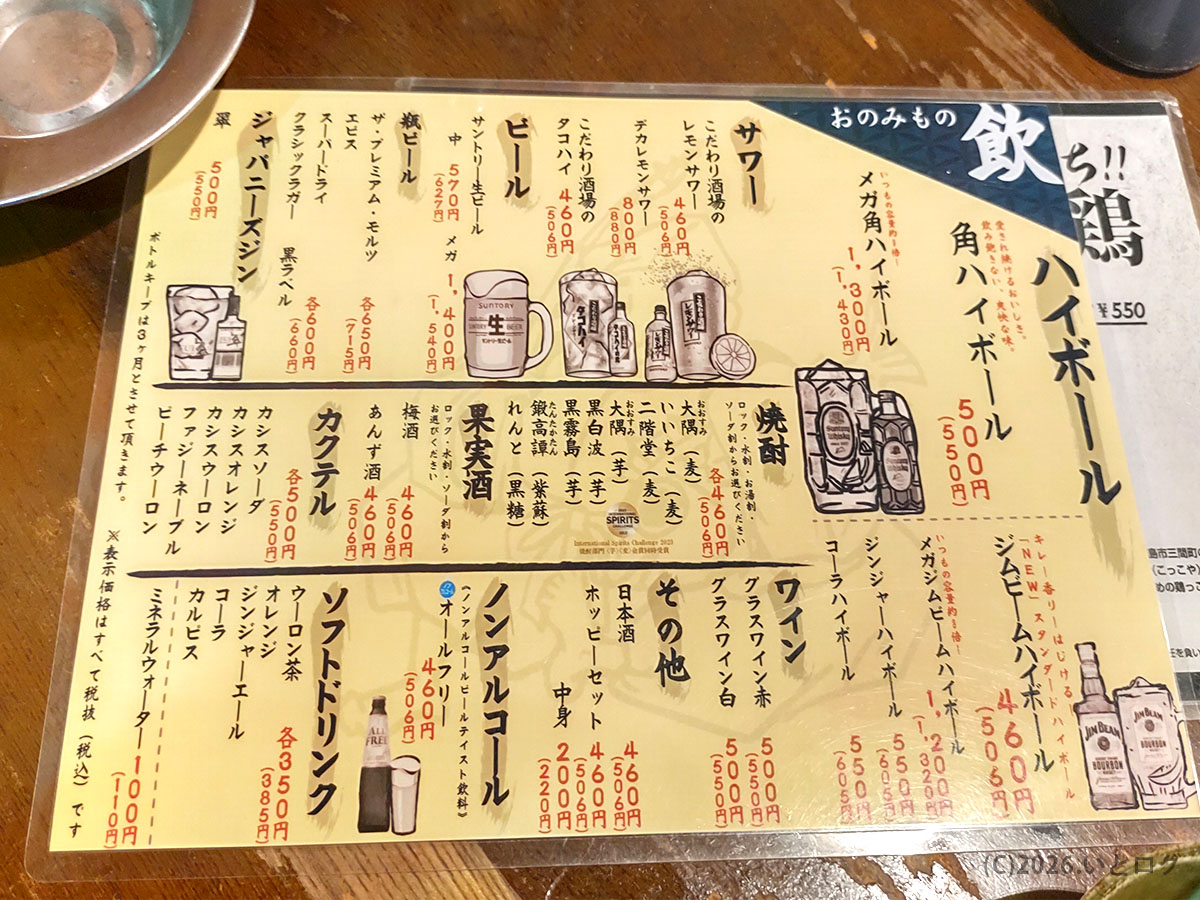 飲
おのみもの
ち!!
鶏
¥550
ハイボール
愛され続けるおいしさ。
飲み飽きない、爽快な味。
角ハイボール
500円
(550円)
いつもの容量約3倍!
メガ角ハイボール
1,300円
(1,430円)
キレー香りーはじける!
「NEW」スタンダードハイボール
ジムビームハイボール
460円
(506円)
いつもの容量約3倍!
メガジムビームハイボール
1,200円
(1,320円)
ジンジャーハイボール
550円
(605円)
コーラハイボール
550円
(605円)
サワー
こだわり酒場の
レモンサワー
460円
(506円)
デカレモンサワー
800円
(880円)
こだわり酒場の
タコハイ
460円
(506円)
ビール
サントリー生ビール
中 570円
(627円)
メガ 1,400円
(1,540円)
瓶ビール
ザ・プレミアム・モルツ
各650円
(715円)
エビス
スーパードライ
クラシックラガー
黒ラベル
各600円
(660円)
ジャパニーズジン
翠
500円
(550円)
焼酎
ロック・水割・お湯割・
ソーダ割からお選びください
各460円
(506円)
おおすみ
大隅(麦)
いいちこ(麦)
二階堂(麦)
おおすみ
大隅(芋)
黒白波(芋)
黒霧島(芋)
たんたかたん
鍛高譚(紫蘇)
れんと(黒糖)
INTERNATIONAL
SPIRITS
CHALLENGE
International Spirits Challenge 2023
焼酎部門(芋)(麦)金賞同時受賞
果実酒
ロック・水割・ソーダ割から
お選びください
梅酒
460円
(506円)
あんず酒
460円
(506円)
カクテル
各500円
(550円)
カシスソーダ
カシスオレンジ
カシスウーロン
ファジーネーブル
ピーチウーロン
ワイン
グラスワイン赤
500円
(550円)
グラスワイン白
500円
(550円)
その他
日本酒
460円
(506円)
ホッピーセット
460円
(506円)
中身
200円
(220円)
ノンアルコール
(ノンアルコールビールテイスト飲料)
オールフリー
460円
(506円)
ソフトドリンク
各350円
(385円)
ウーロン茶
オレンジ
ジンジャーエール
コーラ
カルピス
ミネラルウォーター
100円
(110円)
ボトルキープは3ヶ月とさせて頂きます。
※表示価格はすべて税抜(税込)です
SUNTORY
SUNTORY BEER
生
サントリー生ビール
こだわり酒場の
レモンサワー
タコハイ
Suntory
Whisky
ALL
FREE
JIM BEAM
BOURBON
JIM BEAM
BOURBON
島市三間町
(ごっこや)
(C)2026.いとログ